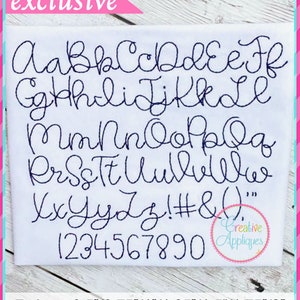 exclusive
AaBbCcDdEeFf
GgHhIiJjKkLl
MmNnOoPpQq
RrSsTtUuVvWw
XxYyZz!#&();'"
1234567890
Creative
Appliques